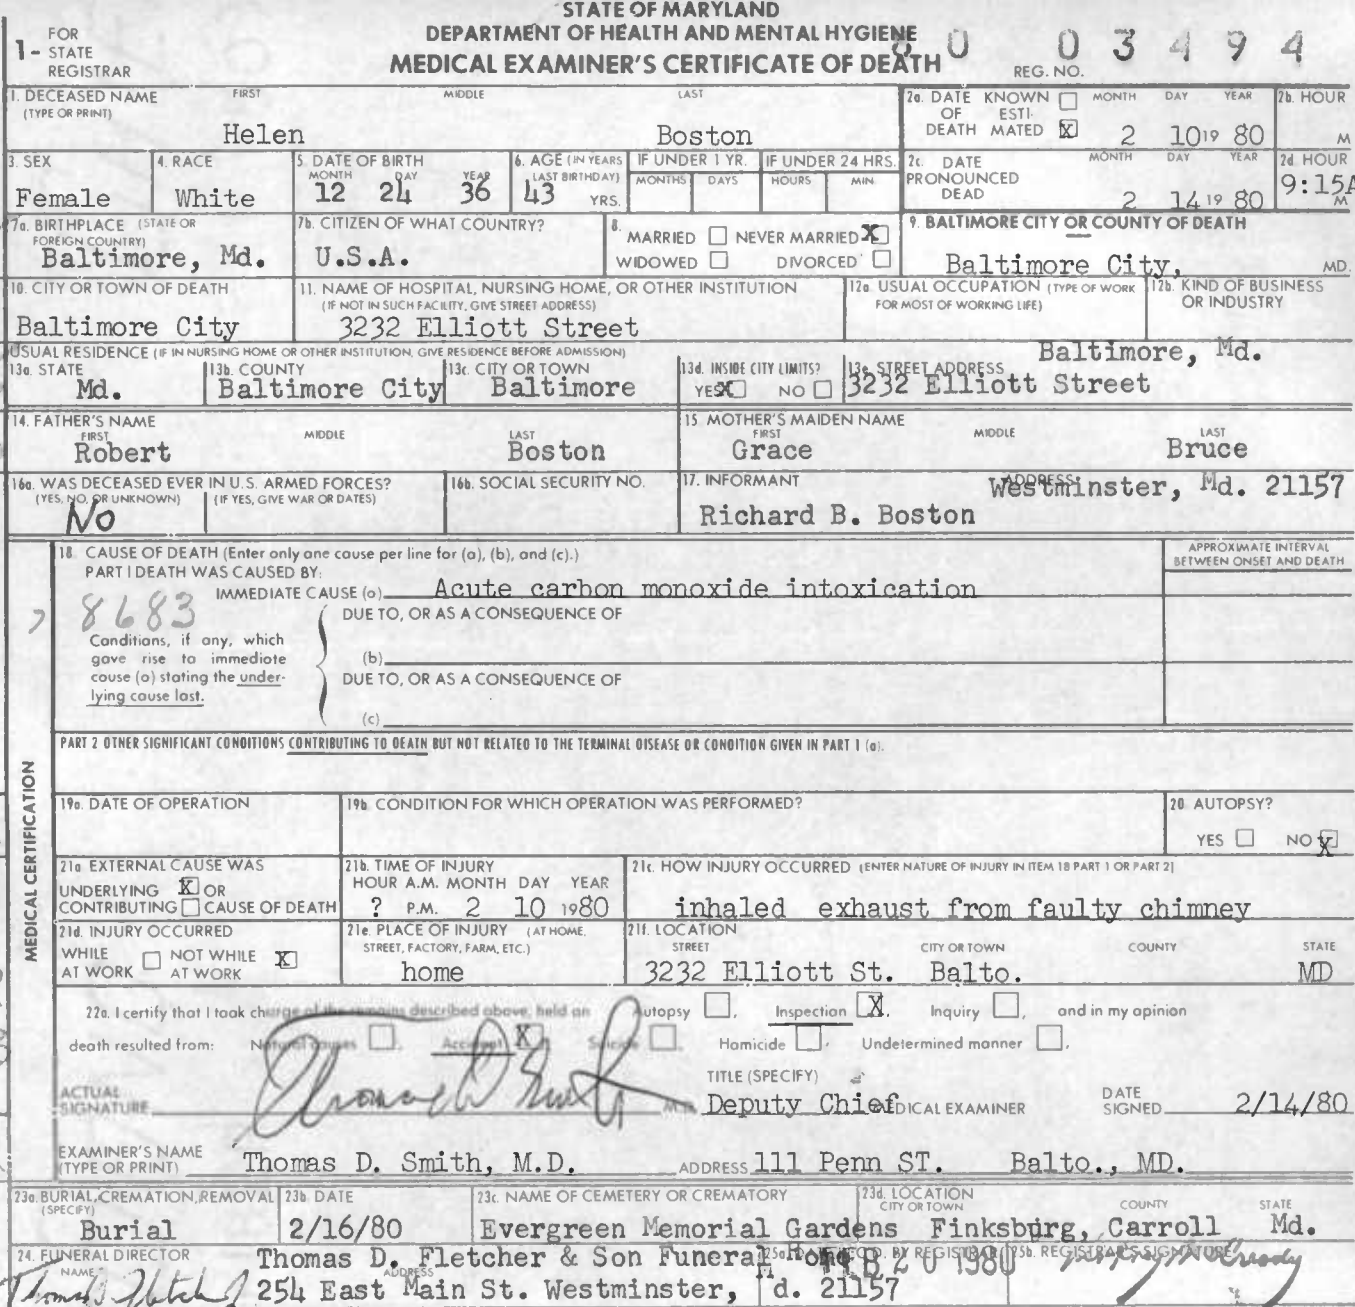 STATE OF MARYLAND
DEPARTMENT OF HEALTH AND MENTAL HYGIENE
MEDICAL EXAMINER'S CERTIFICATE OF DEATH
1- FOR STATE REGISTRAR
REG. NO. 80 03494
1. DECEASED NAME (TYPE OR PRINT) FIRST MIDDLE LAST
Helen Boston
2a. DATE OF DEATH KNOWN ☐ ESTIMATED ☒ MONTH DAY YEAR
2 10 19 80
2b. HOUR M
3. SEX
Female
4. RACE
White
5. DATE OF BIRTH MONTH DAY YEAR
12 24 36
6. AGE (IN YEARS LAST BIRTHDAY)
43 YRS.
IF UNDER 1 YR. MONTHS DAYS
IF UNDER 24 HRS. HOURS MIN.
2c. DATE PRONOUNCED DEAD MONTH DAY YEAR
2 14 19 80
2d. HOUR
9:15A M
7a. BIRTHPLACE (STATE OR FOREIGN COUNTRY)
Baltimore, Md.
7b. CITIZEN OF WHAT COUNTRY?
U.S.A.
8. MARRIED ☐ NEVER MARRIED ☒
WIDOWED ☐ DIVORCED ☐
9. BALTIMORE CITY OR COUNTY OF DEATH
Baltimore City, MD.
10. CITY OR TOWN OF DEATH
Baltimore City
11. NAME OF HOSPITAL, NURSING HOME, OR OTHER INSTITUTION
(IF NOT IN SUCH FACILITY, GIVE STREET ADDRESS)
3232 Elliott Street
12a. USUAL OCCUPATION (TYPE OF WORK FOR MOST OF WORKING LIFE)
12b. KIND OF BUSINESS OR INDUSTRY
USUAL RESIDENCE (IF IN NURSING HOME OR OTHER INSTITUTION, GIVE RESIDENCE BEFORE ADMISSION)
13a. STATE
Md.
13b. COUNTY
Baltimore City
13c. CITY OR TOWN
Baltimore
13d. INSIDE CITY LIMITS?
YES ☒ NO ☐
Baltimore, Md.
13e. STREET ADDRESS
3232 Elliott Street
14. FATHER'S NAME FIRST MIDDLE LAST
Robert Boston
15. MOTHER'S MAIDEN NAME FIRST MIDDLE LAST
Grace Bruce
16a. WAS DECEASED EVER IN U.S. ARMED FORCES?
(YES, NO, OR UNKNOWN) (IF YES, GIVE WAR OR DATES)
No
16b. SOCIAL SECURITY NO.
17. INFORMANT ADDRESS
Westminster, Md. 21157
Richard B. Boston
MEDICAL CERTIFICATION
18. CAUSE OF DEATH (Enter only one cause per line for (a), (b), and (c).)
APPROXIMATE INTERVAL BETWEEN ONSET AND DEATH
PART I DEATH WAS CAUSED BY:
IMMEDIATE CAUSE (a) Acute carbon monoxide intoxication
8683
DUE TO, OR AS A CONSEQUENCE OF
Conditions, if any, which gave rise to immediate cause (a) stating the underlying cause last.
(b)
DUE TO, OR AS A CONSEQUENCE OF
(c)
PART 2 OTHER SIGNIFICANT CONDITIONS CONTRIBUTING TO DEATH BUT NOT RELATED TO THE TERMINAL DISEASE OR CONDITION GIVEN IN PART 1 (a).
19a. DATE OF OPERATION
19b. CONDITION FOR WHICH OPERATION WAS PERFORMED?
20. AUTOPSY?
YES ☐ NO ☒
21a. EXTERNAL CAUSE WAS
UNDERLYING ☒ OR
CONTRIBUTING ☐ CAUSE OF DEATH
21b. TIME OF INJURY
HOUR A.M. MONTH DAY YEAR
? P.M. 2 10 1980
21c. HOW INJURY OCCURRED (ENTER NATURE OF INJURY IN ITEM 18 PART 1 OR PART 2)
inhaled exhaust from faulty chimney
21d. INJURY OCCURRED
WHILE AT WORK ☐ NOT WHILE AT WORK ☒
21e. PLACE OF INJURY (AT HOME, STREET, FACTORY, FARM, ETC.)
home
21f. LOCATION STREET CITY OR TOWN COUNTY STATE
3232 Elliott St. Balto. MD
22a. I certify that I took charge of the remains described above, held an Autopsy ☐, Inspection ☒, Inquiry ☐, and in my opinion
death resulted from: Natural causes ☐, Accident ☒, Suicide ☐, Homicide ☐, Undetermined manner ☐.
ACTUAL SIGNATURE Thomas D. Smith M.D.
TITLE (SPECIFY)
Deputy Chief MEDICAL EXAMINER
DATE SIGNED 2/14/80
EXAMINER'S NAME (TYPE OR PRINT) Thomas D. Smith, M.D.
ADDRESS 111 Penn ST. Balto., MD.
23a. BURIAL, CREMATION, REMOVAL (SPECIFY)
Burial
23b. DATE
2/16/80
23c. NAME OF CEMETERY OR CREMATORY
Evergreen Memorial Gardens
23d. LOCATION CITY OR TOWN COUNTY STATE
Finksburg, Carroll Md.
24. FUNERAL DIRECTOR
NAME ADDRESS
Thomas D. Fletcher & Son Funeral Home
254 East Main St. Westminster, Md. 21157
25a. REC'D. BY REGISTRAR
FEB 20 1980
25b. REGISTRAR'S SIGNATURE